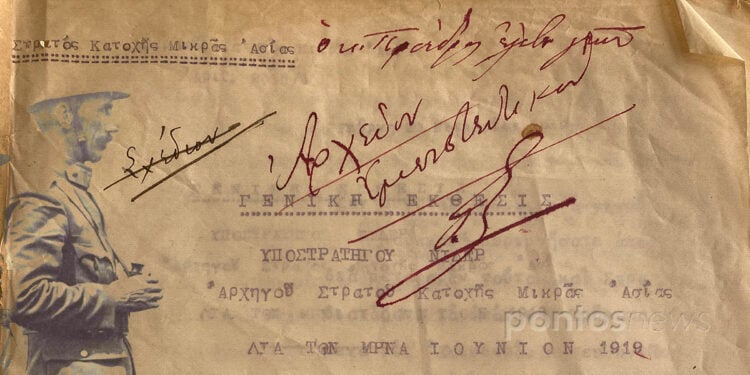 Στρατός Κατοχῆς Μικρᾶς Ἀσίας
Σχέδιον
Ἀρχεῖον
Ἐμπιστευτικόν
ΓΕΝΙΚΗ ΕΚΘΕΣΙΣ
ΥΠΟΣΤΡΑΤΗΓΟΥ ΝΙΔΕΡ
Ἀρχηγοῦ Στρατοῦ Κατοχῆς Μικρᾶς Ἀσίας
ΔΙΑ ΤΟΝ ΜΗΝΑ ΙΟΥΝΙΟΝ 1919
pontosnews